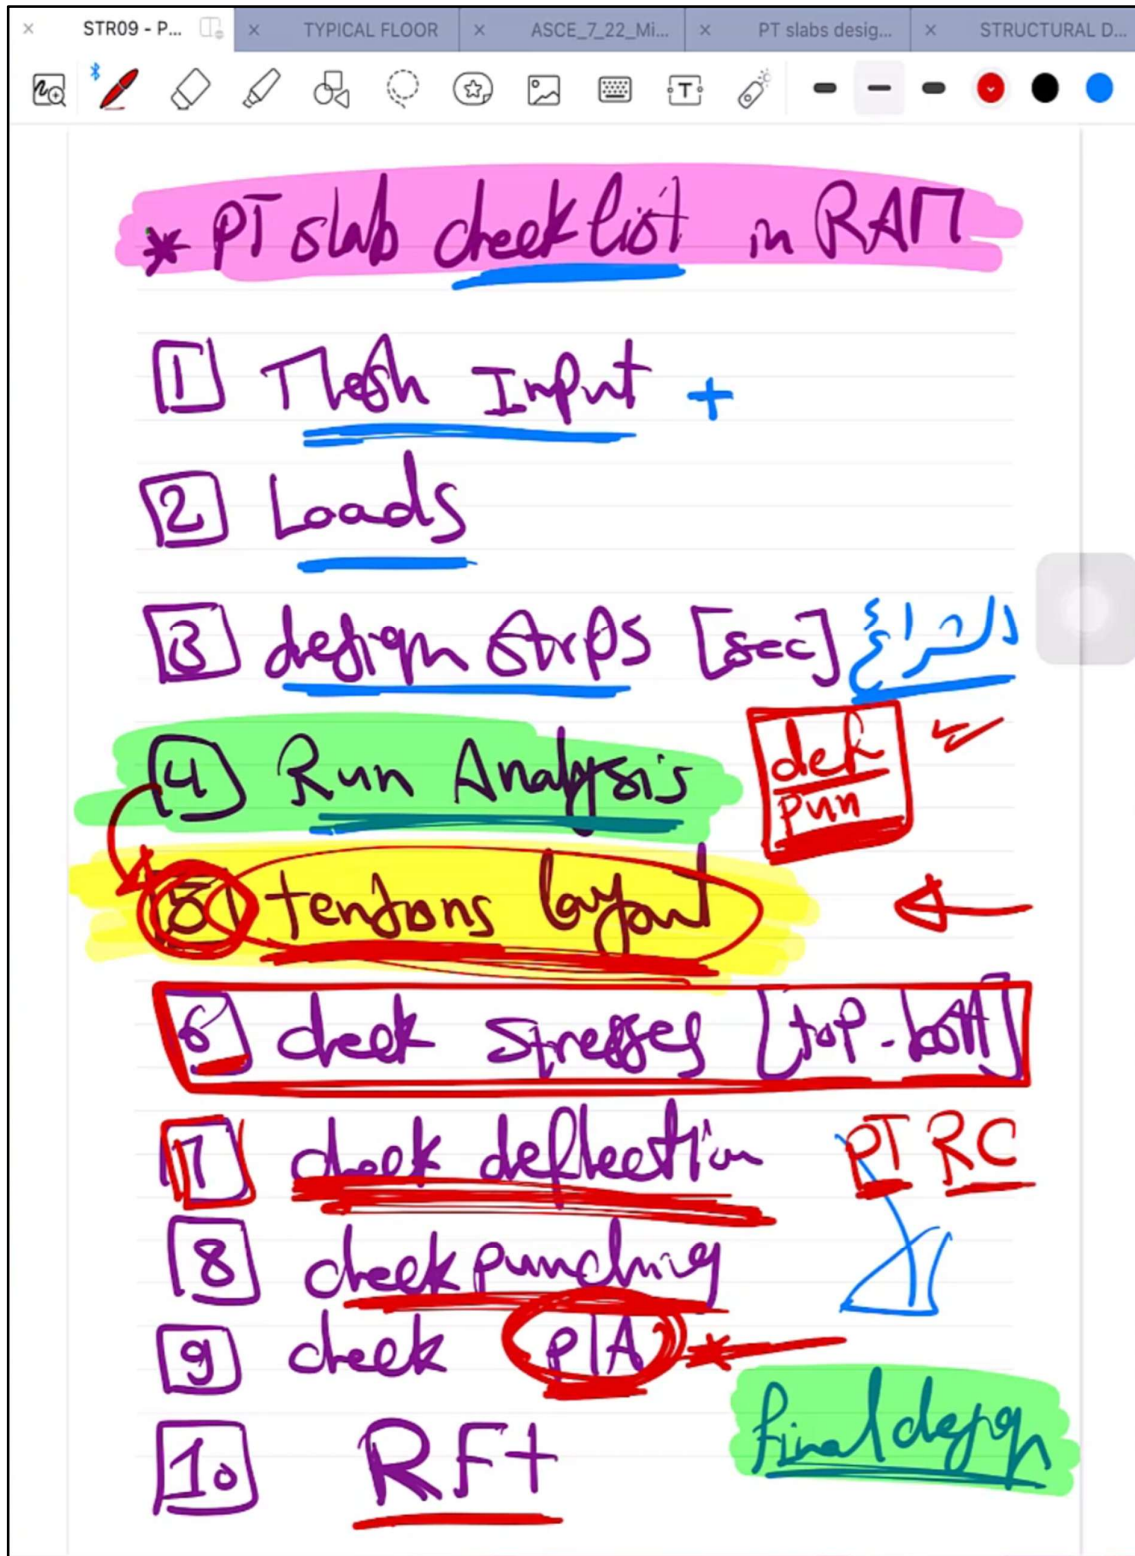 STR09 - P... TYPICAL FLOOR ASCE_7_22_Mi... PT slabs desig... STRUCTURAL D...
T
* PT slab check list in RAM
1 Mesh Input +
2 Loads
3 design strps [sec] الشرائح
4 Run Analysis
def
pun
5 tendons layout
6 check stresses [top - bott]
7 check deflection PT RC
8 check punching
9 check P/A *
final design
10 RFt